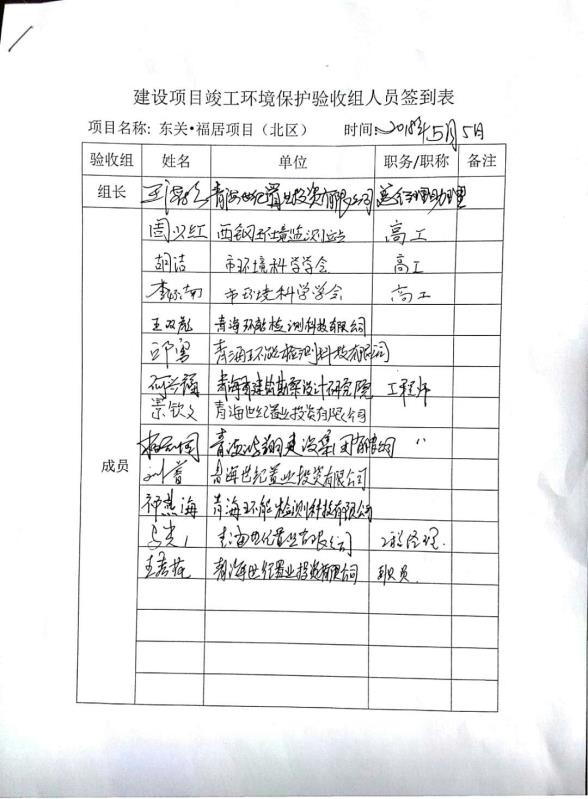 建设项目竣工环境保护验收组人员签到表
项目名称: 东关•福居项目（北区） 时间: 2018年5月5日
验收组 姓名 单位 职务/职称 备注
组长 青海世纪置业投资有限公司 总经理助理
周义红 西钢环境监测站 高工
胡洁 市环境科学学会 高工
市环境科学学会 高工
王双彪 青海环能检测科技有限公司
邱勇 青海环能检测科技有限公司
何兴福 青海省建筑勘察设计研究院 工程师
景钦文 青海世纪置业投资有限公司
成员 青海 建设集团有限公司 〃
刘蕾 青海世纪置业投资有限公司
祁燕海 青海环能检测科技有限公司
青海世纪置业有限公司 工程经理
青海世纪置业投资有限公司 职员